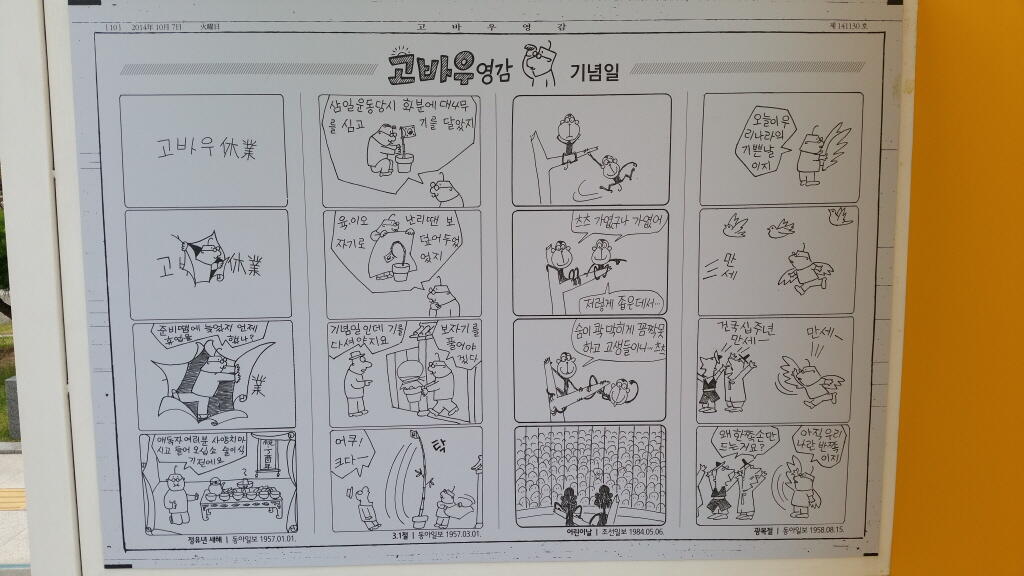 [10] 2014年 10月 7日 火曜日
고 바 우 영 감
제 141130 호
고바우영감
기념일
고바우 休業
고 休業
준비땜에 늦었지 언제
휴업을 했나?
業
애독자 여러분 사양치마
시고 들어 오십소 술이싫
기전에요
?
정유년 새해 | 동아일보 1957.01.01.
삼일운동당시 화분에 대나무
를 심고 기를 달았지
육이오 난리땐 보
자기로 덮어두었
었지
기념일인데 기를
다셔얒지요
보자기를
풀어야
겠다
어쿠!
크다―
탁
3.1절 | 동아일보 1957.03.01.
츠츠 가엾구나 가엾어
저렇게 좁은데서…
숨이 콱 막히게 꼼짝못
하고 고생들이니…츠츠
어린이날 | 조선일보 1984.05.06.
오늘이 우
리나라의
기쁜날
이지
만
세
건국십주년
만세―
만세―
왜 한쪽손만
드는거요?
아직 우리
나란 반쪽
이지
광복절 | 동아일보 1958.08.15.